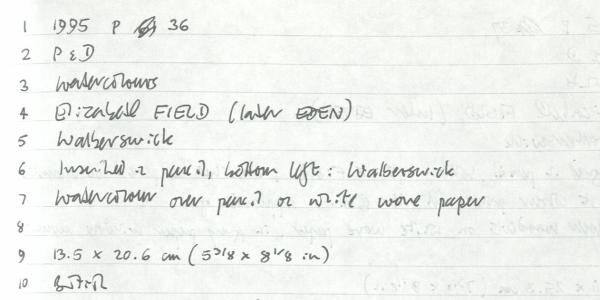 1 1995 P 36
2 P & D
3 Watercolours
4 Elizabeth FIELD (later EDEN)
5 Walberswick
6 Inscribed in pencil, bottom left: Walberswick
7 Watercolour over pencil on white wove paper
8
9 13.5 x 20.6 cm (5 3/8 x 8 1/8 in)
10 British